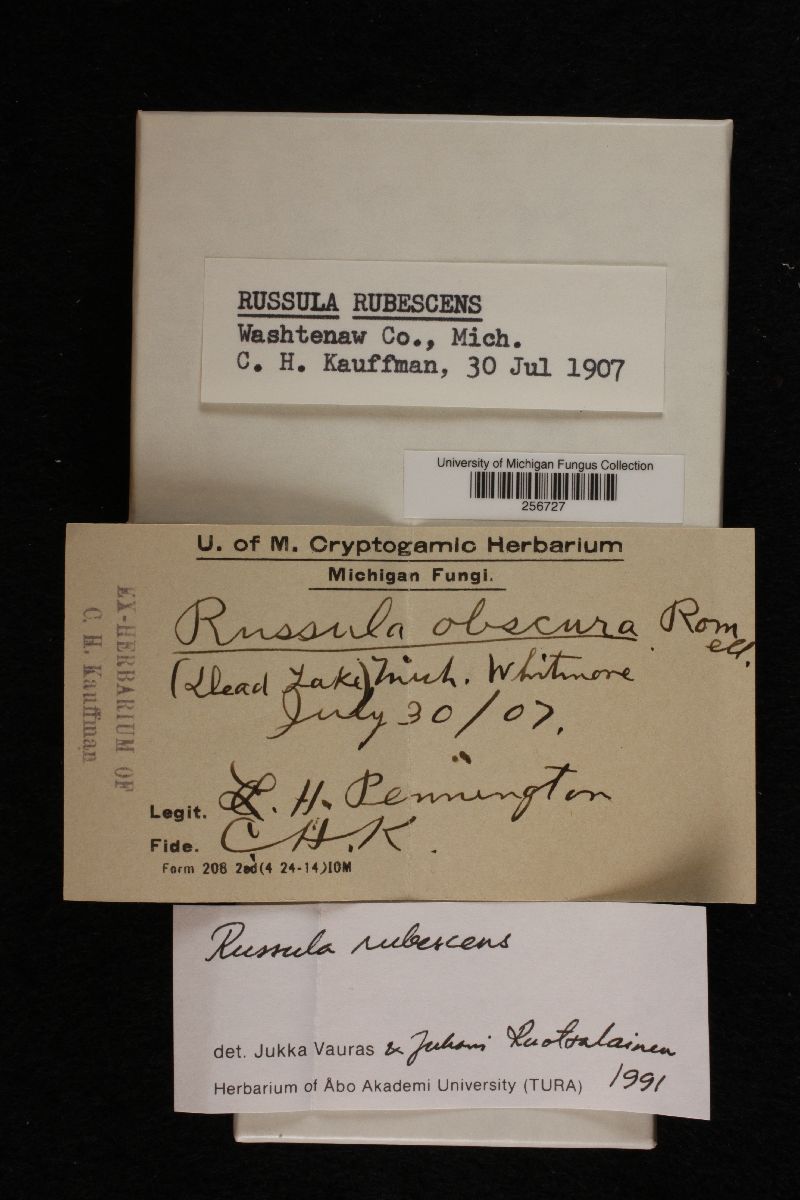 RUSSULA RUBESCENS
Washtenaw Co., Mich.
C. H. Kauffman, 30 Jul 1907
University of Michigan Fungus Collection
256727
U. of M. Cryptogamic Herbarium
Michigan Fungi.
Russula obscura Romell.
(Dead Lake) Mich. Whitmore
July 30/07.
Legit. L. H. Pennington
Fide. C. H. K.
Form 208 2ed(4 24-14)10M
EX-HERBARIUM OF
C. H. Kauffman
Russula rubescens
det. Jukka Vauras & Juhani Ruotsalainen
Herbarium of Åbo Akademi University (TURA) 1991